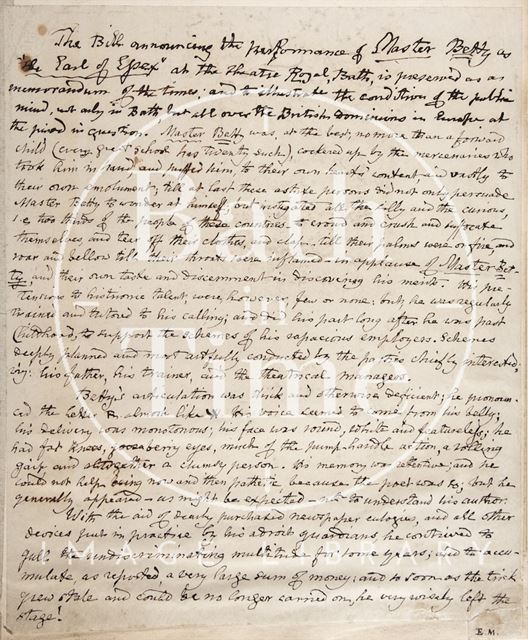 The Bill announcing the performance of Master Betty as
"the Earl of Essex" at the Theatre Royal, Bath, is preserved as a
memorandum of the times; and to illustrate the condition of the public
mind, not only in Bath but all over the British Dominions in Europe at
the period in question. Master Betty was, at the best, no more than a forward
child (every great school has twenty such), cockered up by the mercenaries who
took him in hand and puffed him, to their own hearts' content and vastly to
their own emolument, till at last these astute persons did not only persuade
Master Betty to wonder at himself but instigated all the silly and the curious
i.e. two thirds of the people of these countries to crowd and crush and suffocate
themselves, and tear off their clothes, and clap till their palms were on fire, and
roar and bellow till their throats were inflamed in applause of Master Bet-
ty, and their own taste and discernment in discovering his merit. His pre-
tensions to histrionic talent were, however, few or none: but, he was regularly
trained and tutored to his calling; and did his part long after he was past
Childhood, to support the schemes of his rapacious employers. Schemes
deeply planned and most artfully conducted by the parties chiefly interest-
ing: his father, his trainer, and the theatrical managers.
Betty's articulation was thick and otherwise deficient; he pronoun-
ced the letter R almost like W his voice seem'd to come from his belly;
his delivery was monotonous; his face was round, white and featureless; he
had fat knees, gooseberry eyes, much of the pump handle action, a rolling
gait and altogether a clumsy person. His memory was retentive; and he
could not help being now and then pathetic because the poet was so; but he
generally appeared - as might be expected - not to understand his author.
With the aid of dearly purchased newspaper eulogies, and all other
devices put in practise by his adroit guardians, he contrived to
gull the undiscriminating multitude for some years; and to accu-
mulate, as reported, a very large sum of money; and so soon as the trick
grew stale and could be no longer carried on, he very wisely left the
stage!
E.M.
Bath
in
Time
IMAGE LIBRARY